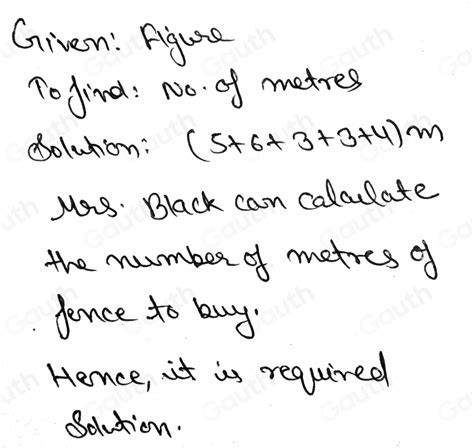 Given: Figure
To find: No. of metres
Solution: (5+6+3+3+4)m
Mrs. Black can calculate
the number of metres of
fence to buy.
Hence, it is required
Solution.